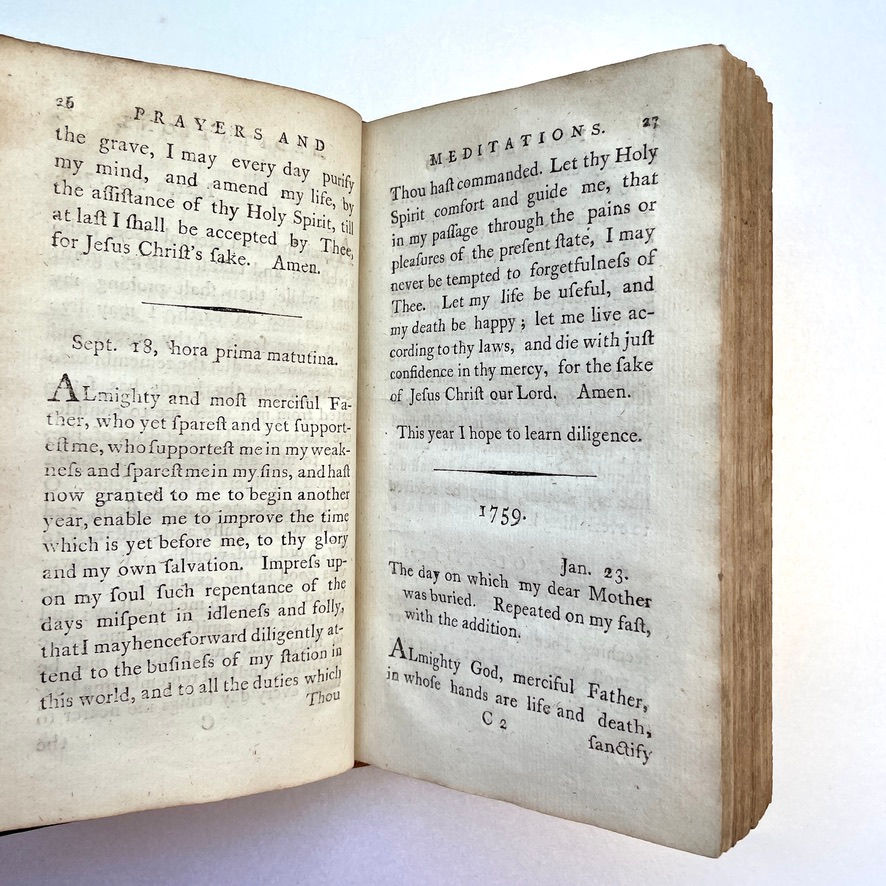 26
PRAYERS AND
the grave, I may every day purify
my mind, and amend my life, by
the aſſiſtance of thy Holy Spirit, till
at laſt I ſhall be accepted by Thee,
for Jeſus Chriſt's ſake. Amen.
Sept. 18, hora prima matutina.
ALmighty and moſt merciful Fa-
ther, who yet ſpareſt and yet ſupport-
eſt me, who ſupporteſt me in my weak-
neſs and ſpareſt me in my ſins, and haſt
now granted to me to begin another
year, enable me to improve the time
which is yet before me, to thy glory
and my own ſalvation. Impreſs up-
on my ſoul ſuch repentance of the
days miſpent in idleneſs and folly,
that I may henceforward diligently at-
tend to the buſineſs of my ſtation in
this world, and to all the duties which
Thou
MEDITATIONS. 27
Thou haſt commanded. Let thy Holy
Spirit comfort and guide me, that
in my paſſage through the pains or
pleaſures of the preſent ſtate, I may
never be tempted to forgetfulneſs of
Thee. Let my life be uſeful, and
my death be happy; let me live ac-
cording to thy laws, and die with juſt
confidence in thy mercy, for the ſake
of Jeſus Chriſt our Lord. Amen.
This year I hope to learn diligence.
1759.
Jan. 23.
The day on which my dear Mother
was buried. Repeated on my faſt,
with the addition.
ALmighty God, merciful Father,
in whoſe hands are life and death,
C 2
ſanctify